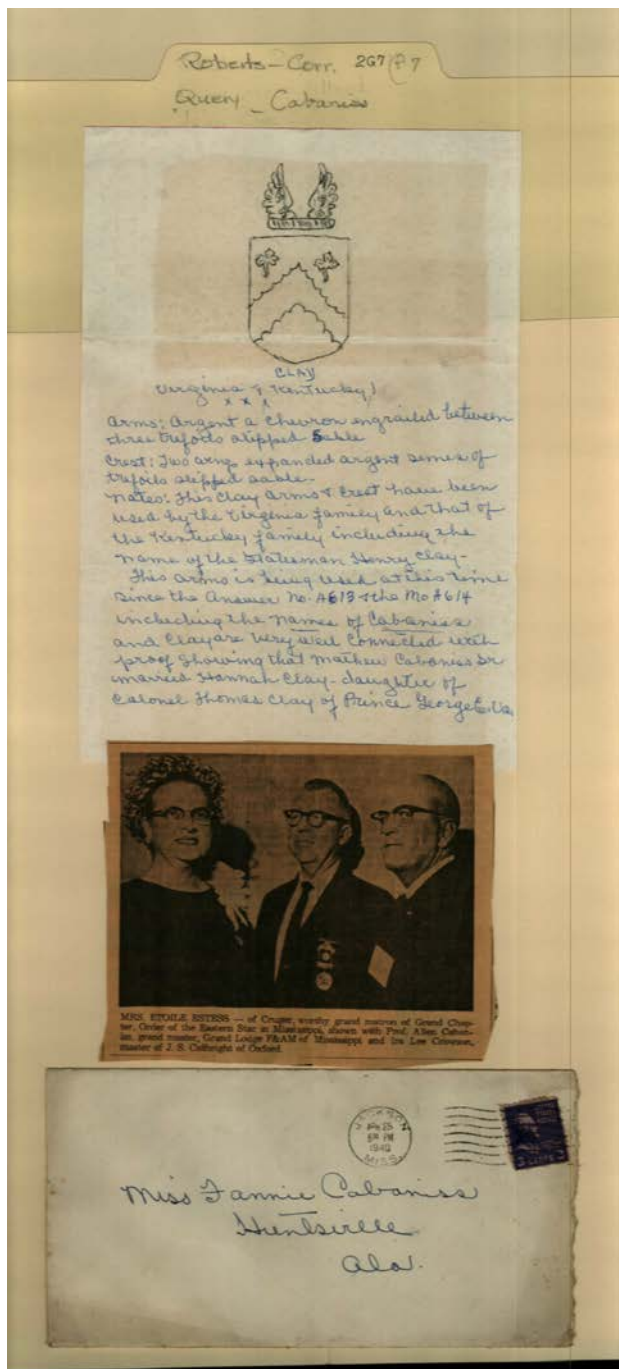 Roberts-Corr. 2G7
Query - Cabaniss
CLAY
Virginia & Kentucky
x x x
Arms: Argent a Chevron engrailed between
three trefoils slipped Sable
Crest: Two expanded argent semes of
trefoils slipped sable.
Notes: This Clay arms & Crest have been
used by the Virginia family and that of
the Kentucky family including the
name of the Statesman Henry Clay-
This arms is being used at this time
since the Answer No. A613 & the Mo A614
including the names of Cabaniss
and Clay are very well connected with
proof showing that Mathew Cabaniss Sr
married Hannah Clay-daughter of
Colonel Thomas Clay of Prince George Va
MRS. ETOILE ESTESS — of Cruger, worthy grand matron of Grand Chap-
ter, Order of the Eastern Star in Mississippi, shown with Prof. Allen Caban-
iss, grand master, Grand Lodge F&AM of Mississippi and Ira Lee
master of J. S. of Oxford.
JACKSON
MISS.
1940
Miss Fannie Cabaniss
Huntsville
Ala.